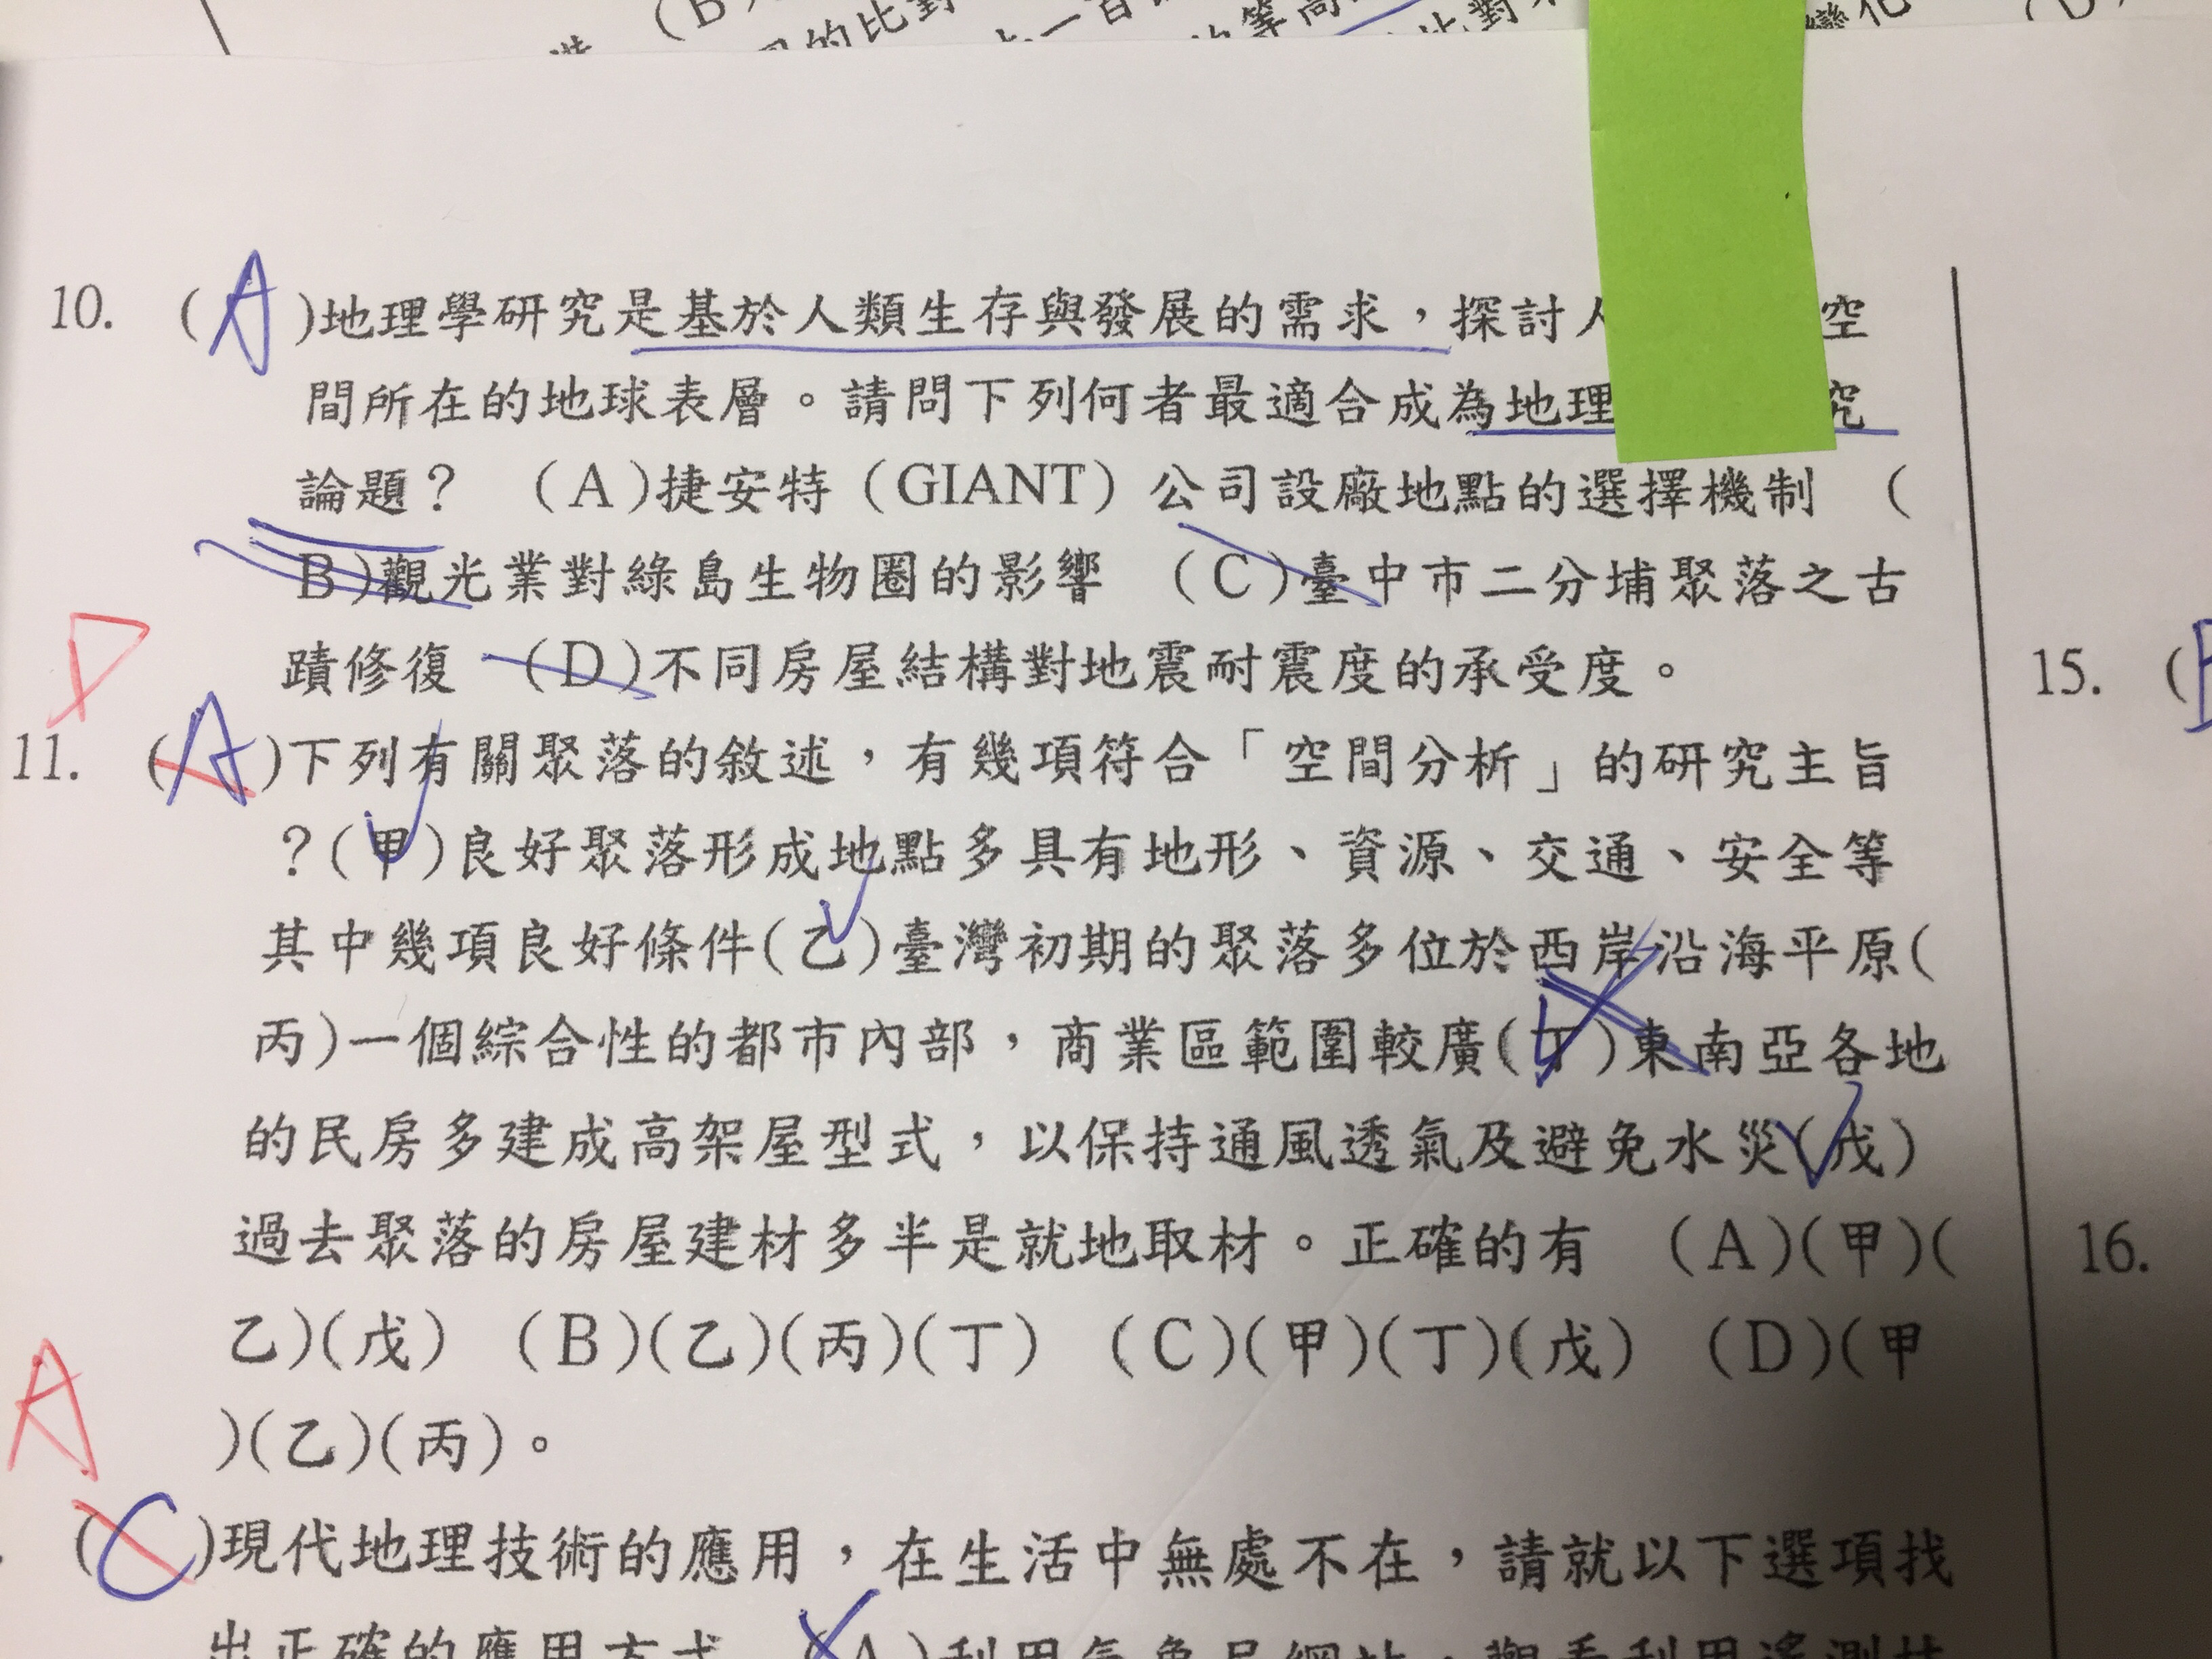 10. (A)地理學研究是基於人類生存與發展的需求，探討人
空
間所在的地球表層。請問下列何者最適合成為地理
究
論題？ (A)捷安特（GIANT）公司設廠地點的選擇機制 (
B)觀光業對綠島生物圈的影響 (C)臺中市二分埔聚落之古
蹟修復 (D)不同房屋結構對地震耐震度的承受度。
D
11. (A)下列有關聚落的敘述，有幾項符合「空間分析」的研究主旨
？(甲)良好聚落形成地點多具有地形、資源、交通、安全等
其中幾項良好條件(乙)臺灣初期的聚落多位於西岸沿海平原(
丙)一個綜合性的都市內部，商業區範圍較廣(丁)東南亞各地
的民房多建成高架屋型式，以保持通風透氣及避免水災(戊)
過去聚落的房屋建材多半是就地取材。正確的有 (A)(甲)(
乙)(戊) (B)(乙)(丙)(丁) (C)(甲)(丁)(戊) (D)(甲
)(乙)(丙)。
A
(C)現代地理技術的應用，在生活中無處不在，請就以下選項找
出正確的應用方式 (A)利用氣象局網站，觀看利用遙測技
15. (
16.